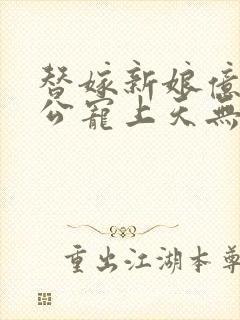 替嫁新娘億
公寵上天無
重出江湖本尊